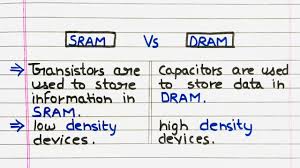 SRAM Vs DRAM
⇒ Transistors are
used to store
information in
SRAM.
Capacitors are used
to store data in
DRAM.
⇒ low density
devices.
high density
devices.